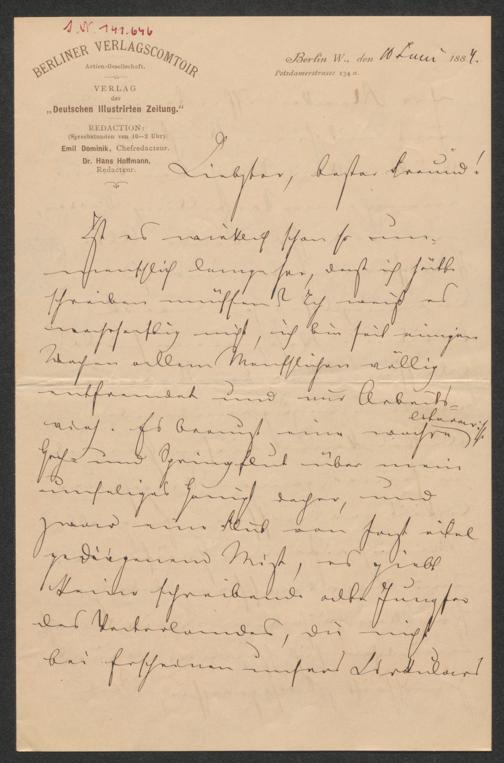 J. N. 141.646
BERLINER VERLAGSCOMTOIR
Actien-Gesellschaft.
VERLAG
der
„Deutschen Illustrirten Zeitung."
REDACTION:
(Sprechstunden von 10–2 Uhr):
Emil Dominik, Chefredacteur.
Dr. Hans Hoffmann,
Redacteur.
Berlin W., den 10 Juni 1884.
Potsdamerstrasse 134 a.
Liebster, bester Freund!
Ist es wirklich schon so un-
menschlich lange her, daß ich hätte
schreiben müssen? Ich weiß es
wahrhaftig nicht, ich bin seit einigen
Wochen allem Menschlichen völlig
entfremdet und nur Arbeits-
vieh. Es braust eine wahre literarische
Hoch- und Springflut über mein
unseliges Haupt daher, und
zwar eine Flut von fast eitel
gediegenem Mist, es giebt
keine schreibende alte Jungfer
des Vaterlandes, die nicht
bei Erscheinen unsers Cirkulars